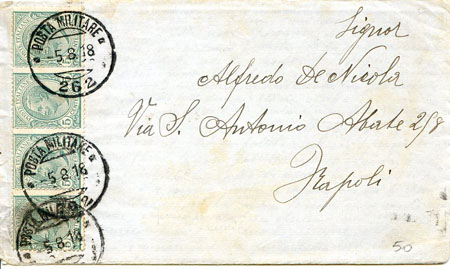 Signor
Alfredo De Nicola
Via S. Antonio Abate 258
Napoli
POSTA MILITARE
5.8.18
262
POSTA MILITARE
5.8.18
5.8.18
50